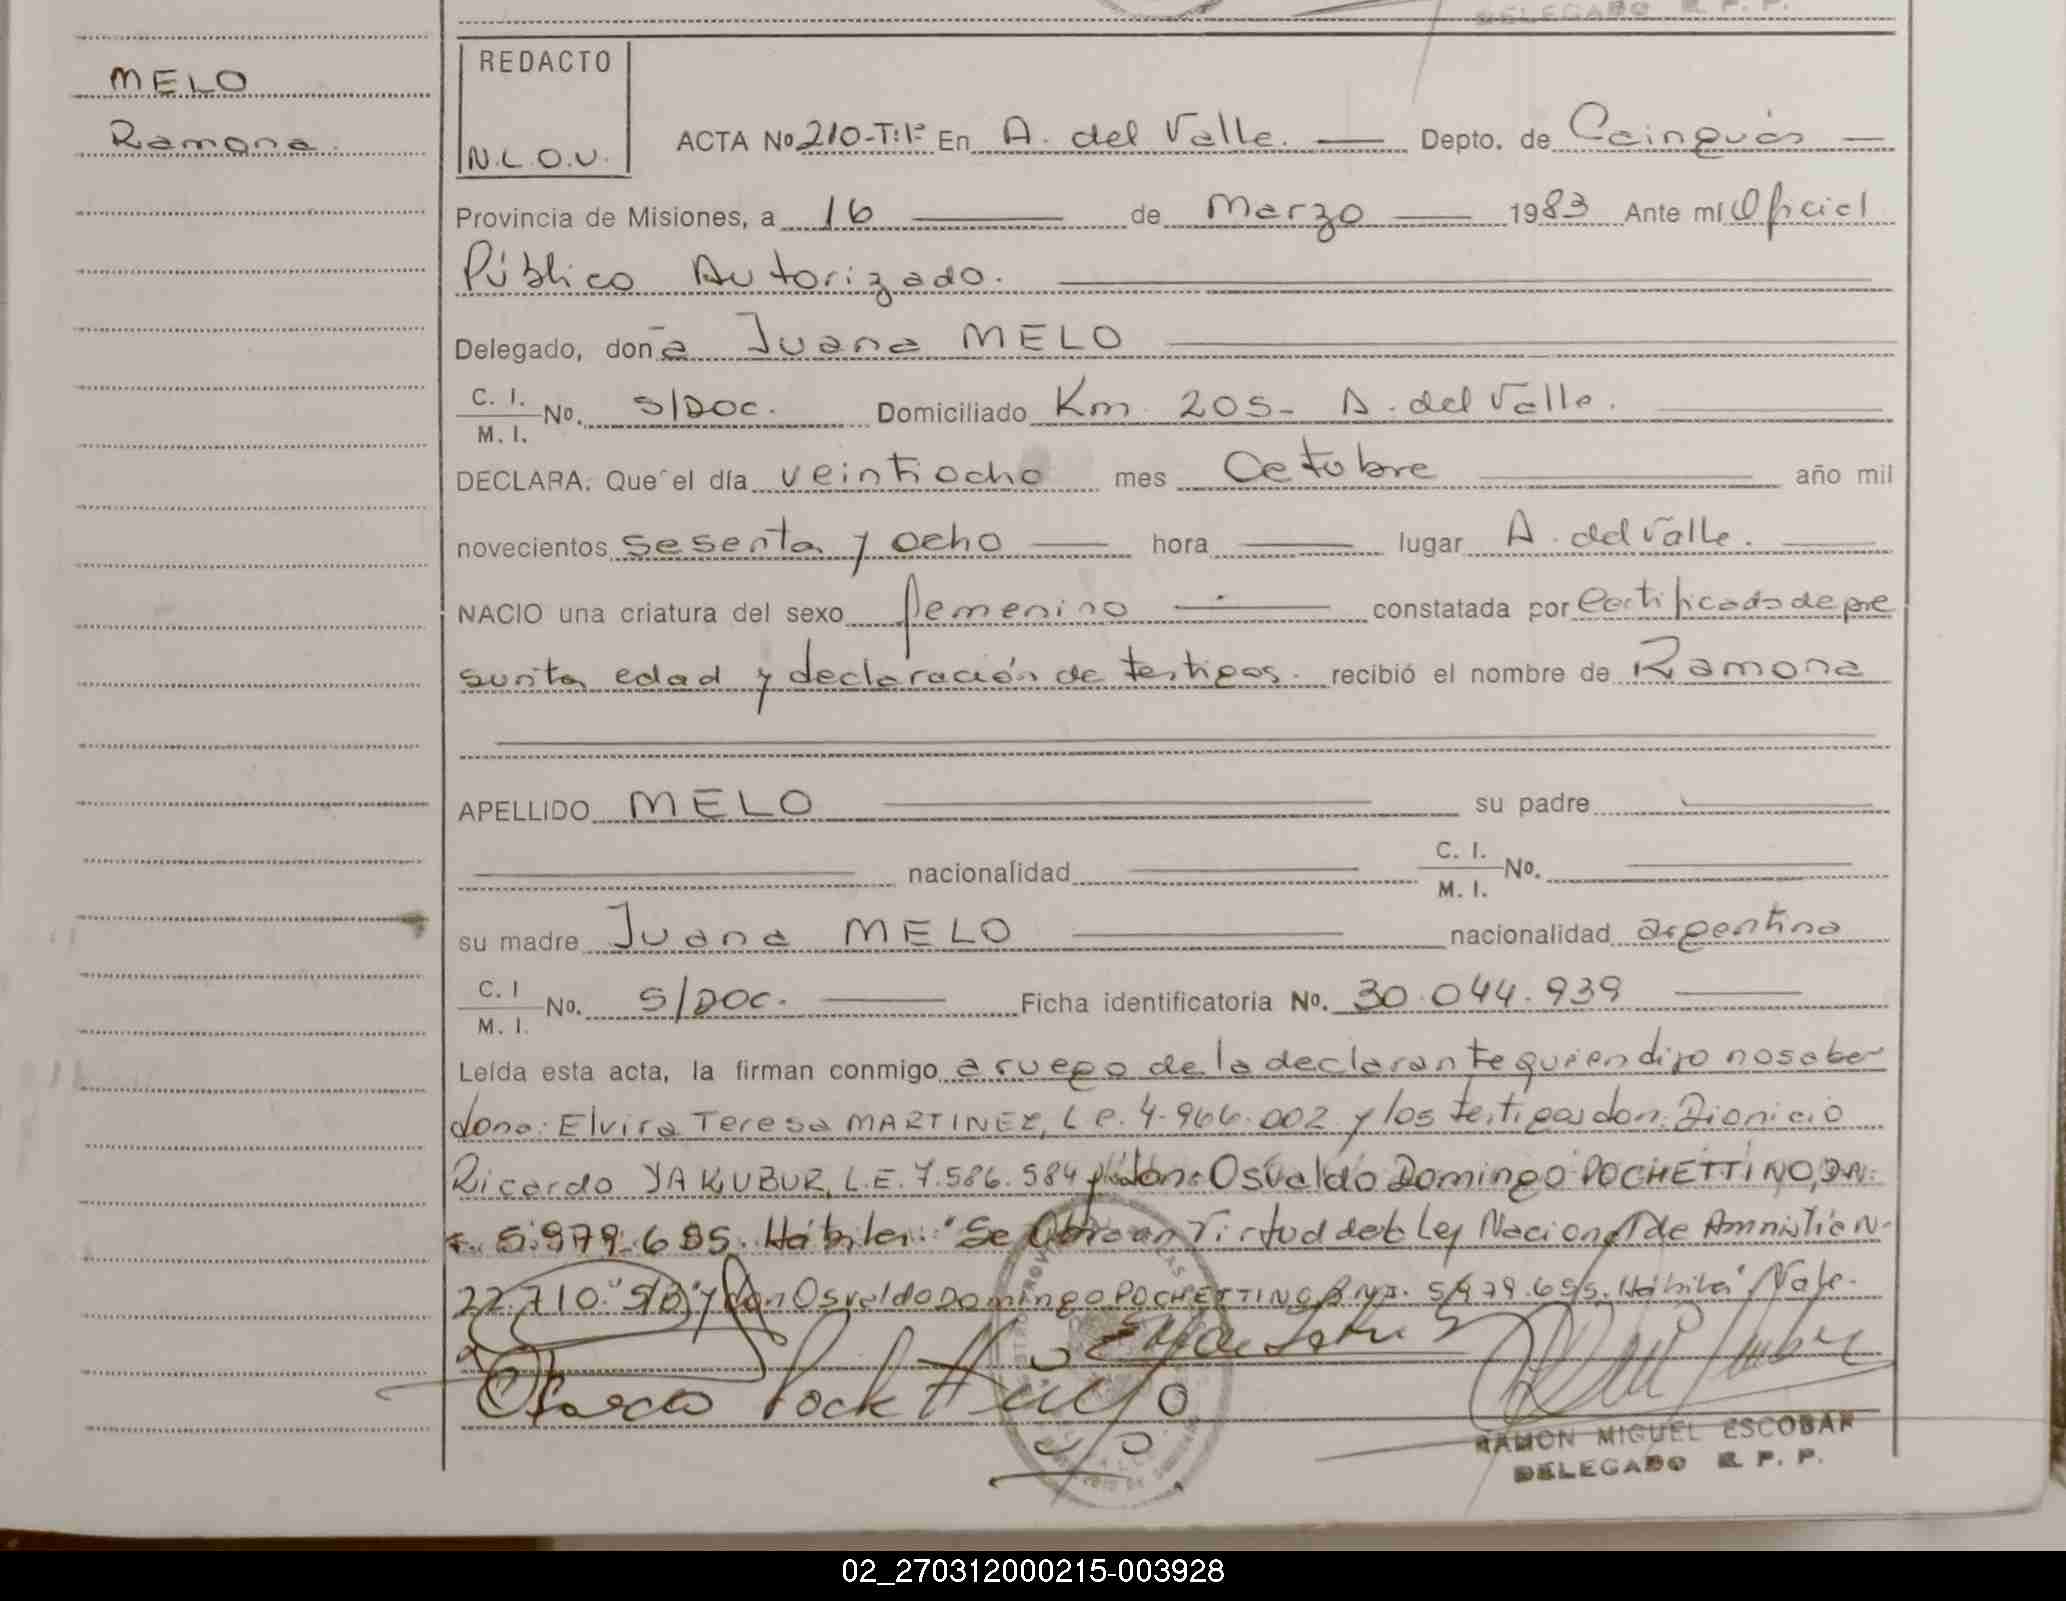 DELEGADO R. P. P.
MELO
Ramona.
REDACTO
N.L.O.U.
ACTA No 210-T:1º En A. del Valle. Depto. de Cainguás
Provincia de Misiones, a 16 de Marzo 1983 Ante mí Oficial
Público Autorizado.
Delegado, doña Juana MELO
C. I.
M. I. No. S/DOC. Domiciliado Km 205- A. del Valle.
DECLARA: Que el día veintiocho mes Octubre año mil
novecientos sesenta y ocho hora lugar A. del Valle.
NACIO una criatura del sexo femenino constatada por Certificado de pre
sunta edad y declaración de testigos. recibió el nombre de Ramona
APELLIDO MELO su padre
nacionalidad C. I.
M. I. No.
su madre Juana MELO nacionalidad argentina
C. I
M. I. No. S/DOC. Ficha identificatoria No. 30.044.939
Leída esta acta, la firman conmigo a ruego de la declarante quien dijo no saber
doña: Elvira Teresa MARTINEZ, L.C. 4.966.002 y los testigos don: Dionicio
Ricardo YAKUBUR, L.E. 7.586.584 don: Osvaldo Domingo POCHETTINO, D.N.
I. 5.979.695. Hábiles: "Se Labró en Virtud de la Ley Nacional de Amnistía N-
22.710." S/B "y don Osvaldo Domingo POCHETTINO, D.N.I. 5.979.695. Hábiles" Vale.
RAMON MIGUEL ESCOBAR
DELEGADO R. P. P.
02_270312000215-003928